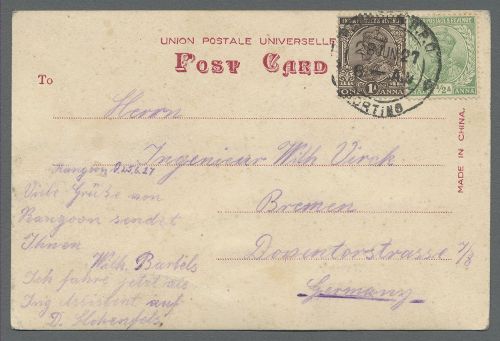 UNION POSTALE UNIVERSELLE
POST CARD
To
INDIA POSTAGE & REVENUE
ONE 1A ANNA
28 JUN 27
SORTING
1/2 A
ANNA
MADE IN CHINA.
Herrn
Ingenieur Wilh Virck
Bremen
Doventorstrasse 7/8
Germany
Rangoon d. 25.6.27
Viele Grüße von
Rangoon sendet
Ihnen
Walth. Bartels
Ich fahre jetzt als
Ing Assistent auf
D. Hohenfels.